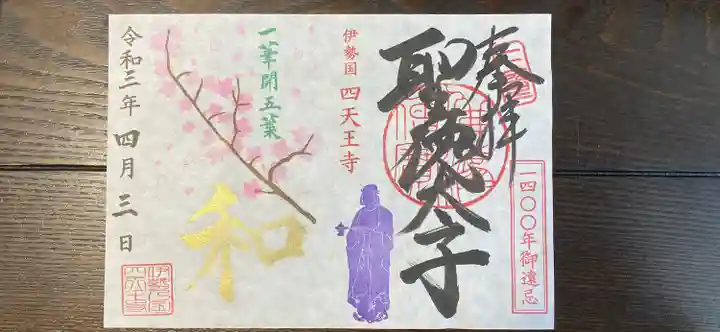 奉拝
一四〇〇年御遠忌
聖徳太子
伊勢国 四天王寺
一華開五葉
和
令和三年 四月 三 日